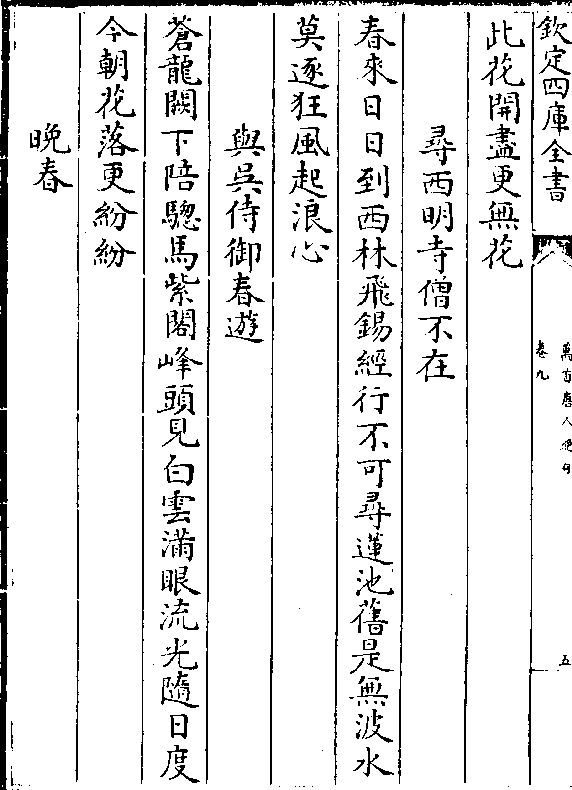 欽定四庫全書
萬首唐人絶句
卷九
五
此花開盡更無花
尋西明寺僧不在
春來日日到西林飛錫經行不可尋蓮池舊是無波水
莫逐狂風起浪心
與吳侍御春遊
蒼龍闕下陪驄馬紫閣峰頭見白雲滿眼流光隨日度
今朝花落更紛紛
晚春